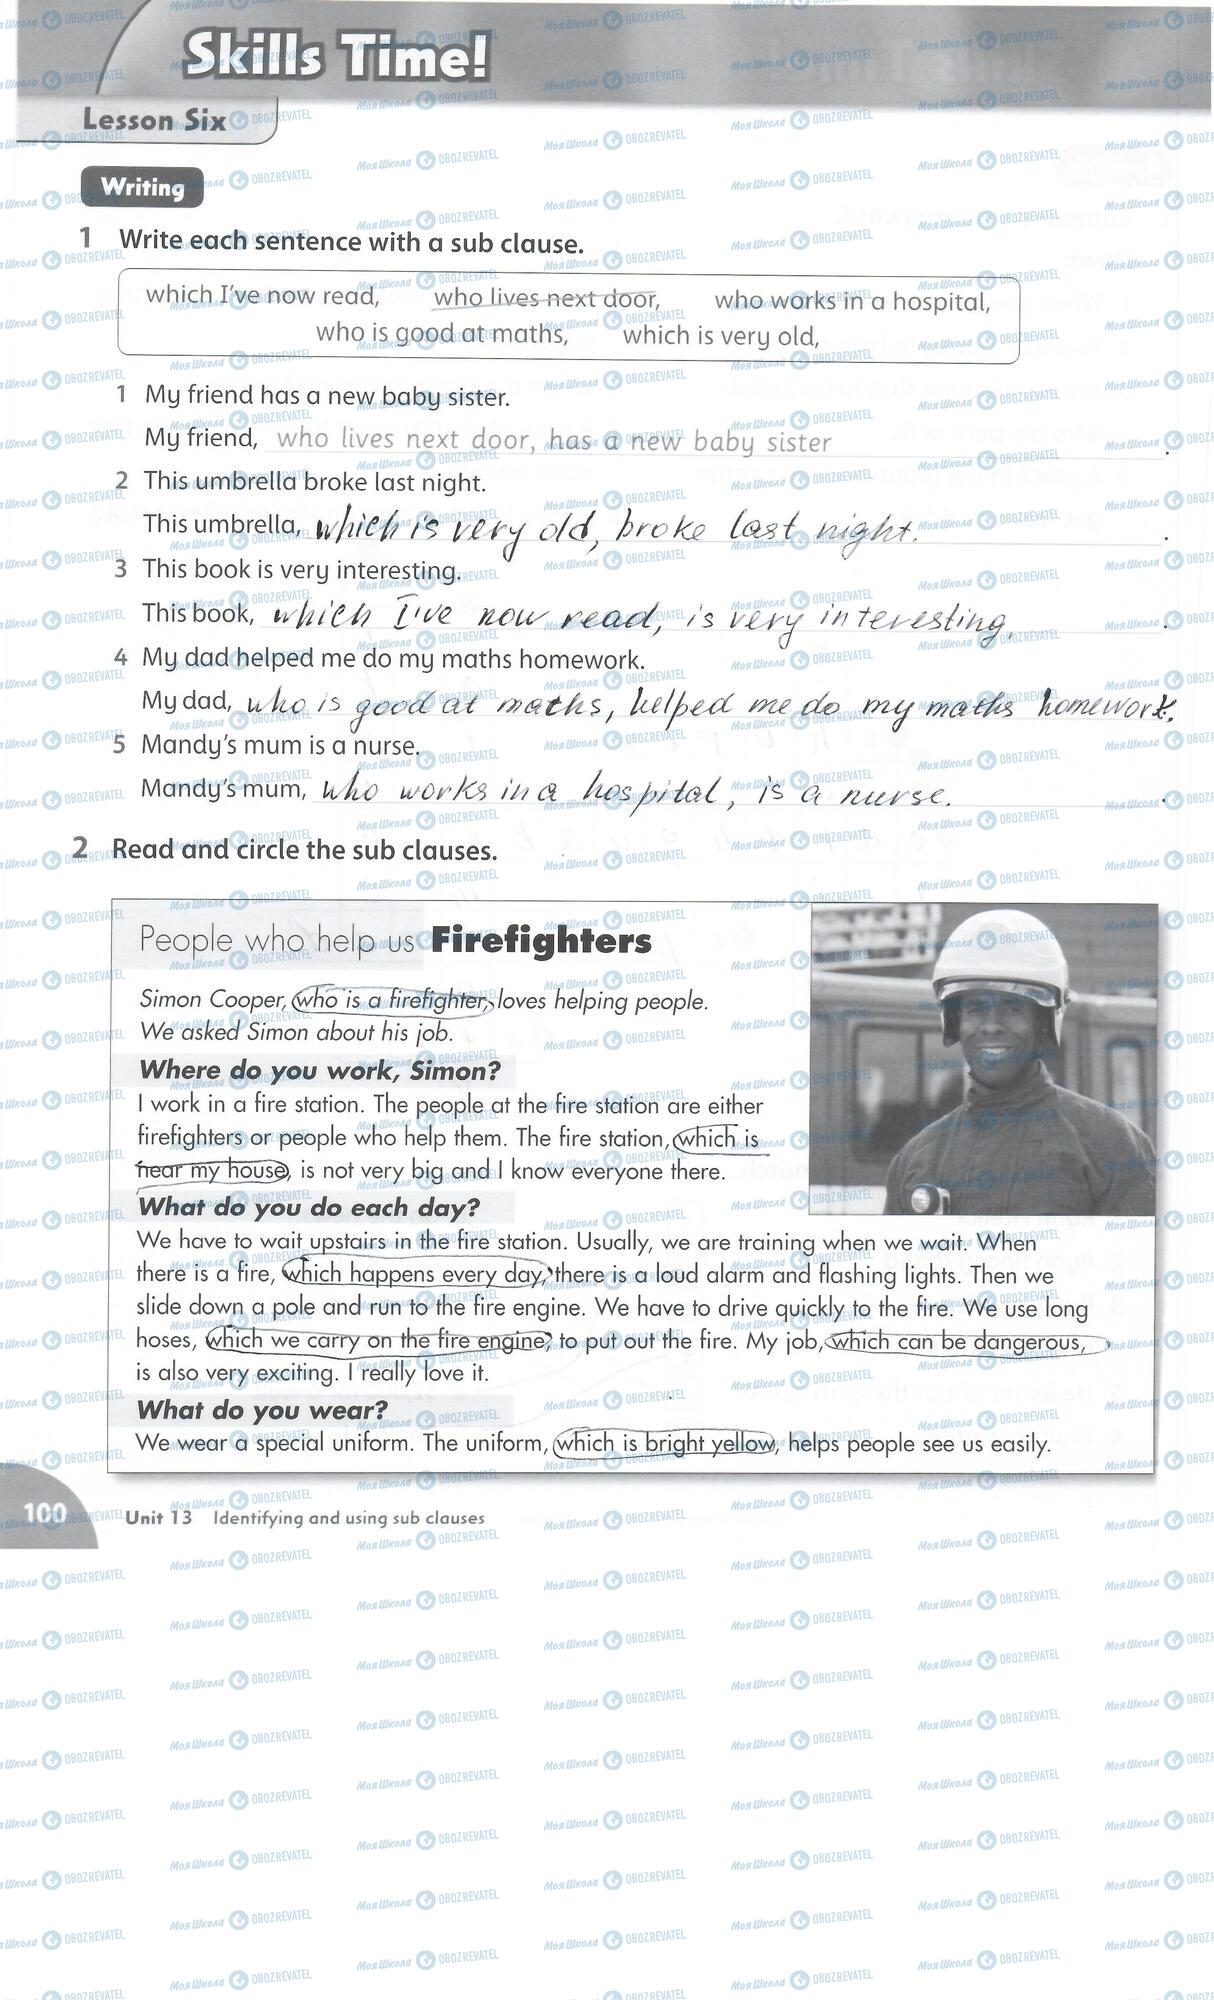 Skills Time!
Lesson Six
Writing
1 Write each sentence with a sub clause.
which I've now read, who lives next door, who works in a hospital,
who is good at maths, which is very old,
1 My friend has a new baby sister.
My friend, who lives next door, has a new baby sister.
2 This umbrella broke last night.
This umbrella, which is very old, broke last night. .
3 This book is very interesting.
This book, which I've now read, is very interesting. .
4 My dad helped me do my maths homework.
My dad, who is good at maths, helped me do my maths homework.
5 Mandy's mum is a nurse.
Mandy's mum, who works in a hospital, is a nurse. .
2 Read and circle the sub clauses.
People who help us Firefighters
Simon Cooper, who is a firefighter, loves helping people.
We asked Simon about his job.
Where do you work, Simon?
I work in a fire station. The people at the fire station are either
firefighters or people who help them. The fire station, which is
near my house, is not very big and I know everyone there.
What do you do each day?
We have to wait upstairs in the fire station. Usually, we are training when we wait. When
there is a fire, which happens every day, there is a loud alarm and flashing lights. Then we
slide down a pole and run to the fire engine. We have to drive quickly to the fire. We use long
hoses, which we carry on the fire engine, to put out the fire. My job, which can be dangerous,
is also very exciting. I really love it.
What do you wear?
We wear a special uniform. The uniform, which is bright yellow, helps people see us easily.
100 Unit 13 Identifying and using sub clauses
Моя Школа OBOZREVATEL